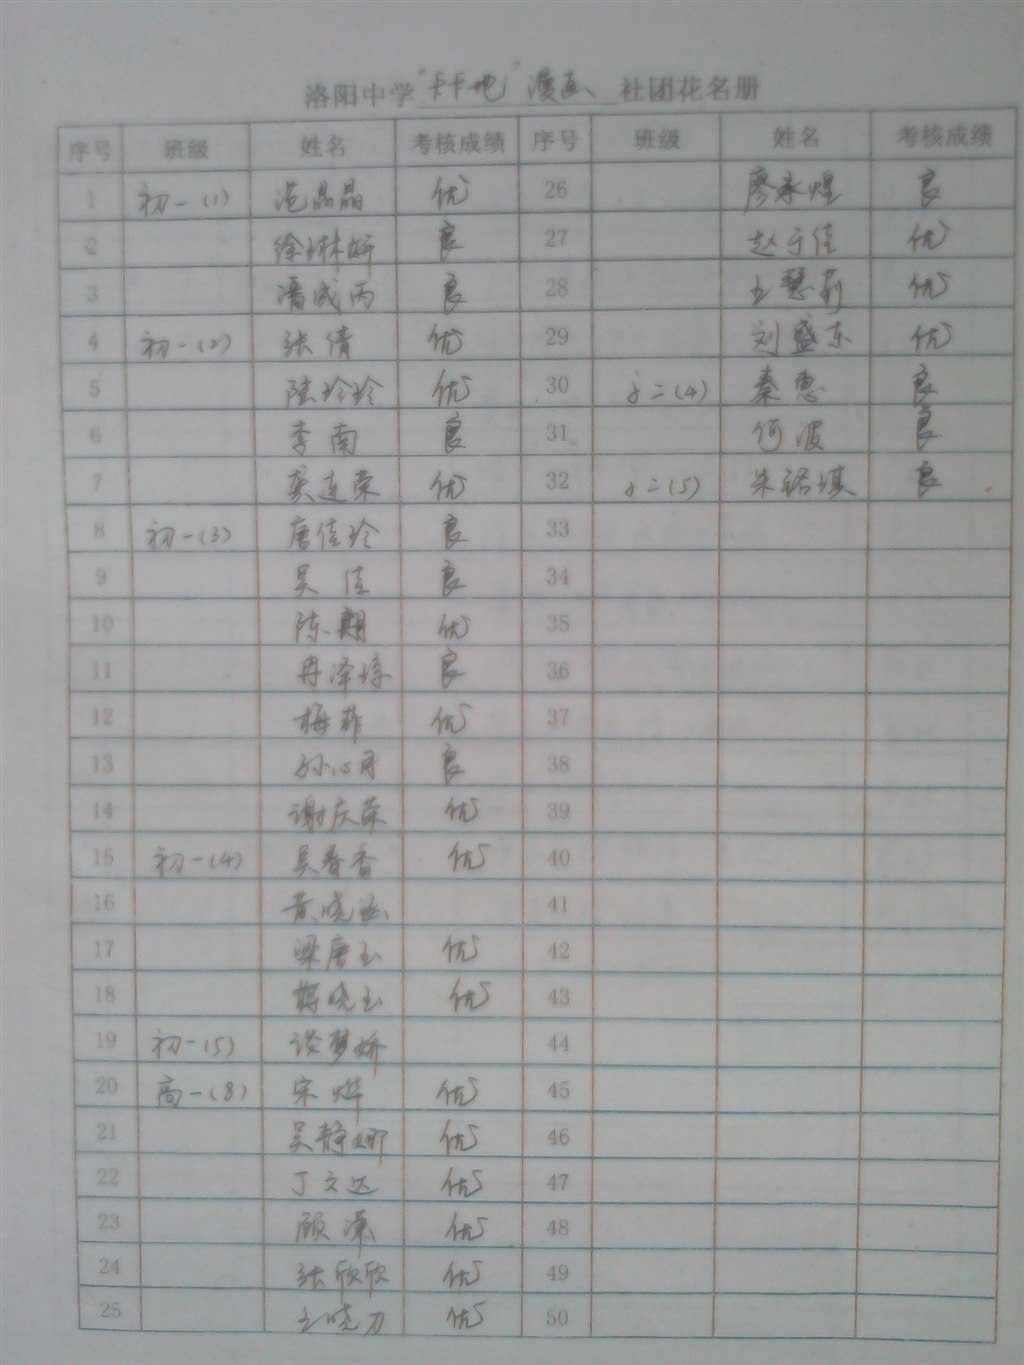 洛阳中学"卡卡地"漫画 社团花名册
序号 班级 姓名 考核成绩 序号 班级 姓名 考核成绩
1 初一(1) 范晶晶 优 26 廖永煌 良
2 徐琳妍 良 27 赵于佳 优
3 潘成丙 良 28 王慧莉 优
4 初一(2) 张倩 优 29 刘盛东 优
5 陆玲玲 优 30 初二(4) 秦惠 良
6 李南 良 31 何波 良
7 龚连荣 优 32 初二(5) 朱铭琪 良
8 初一(3) 唐佳玲 良 33
9 吴佳 良 34
10 陈翔 优 35
11 冉泽 良 36
12 梅菲 优 37
13 孙心月 良 38
14 谢庆荣 优 39
15 初一(4) 吴春香 优 40
16 黄晓涵 41
17 梁唐玉 优 42
18 蒋晓玉 优 43
19 初一(5) 谈梦娇 44
20 高一(8) 宋烨 优 45
21 吴静娜 优 46
22 丁文达 优 47
23 顾潇 优 48
24 张欣欣 优 49
25 王晓刀 优 50